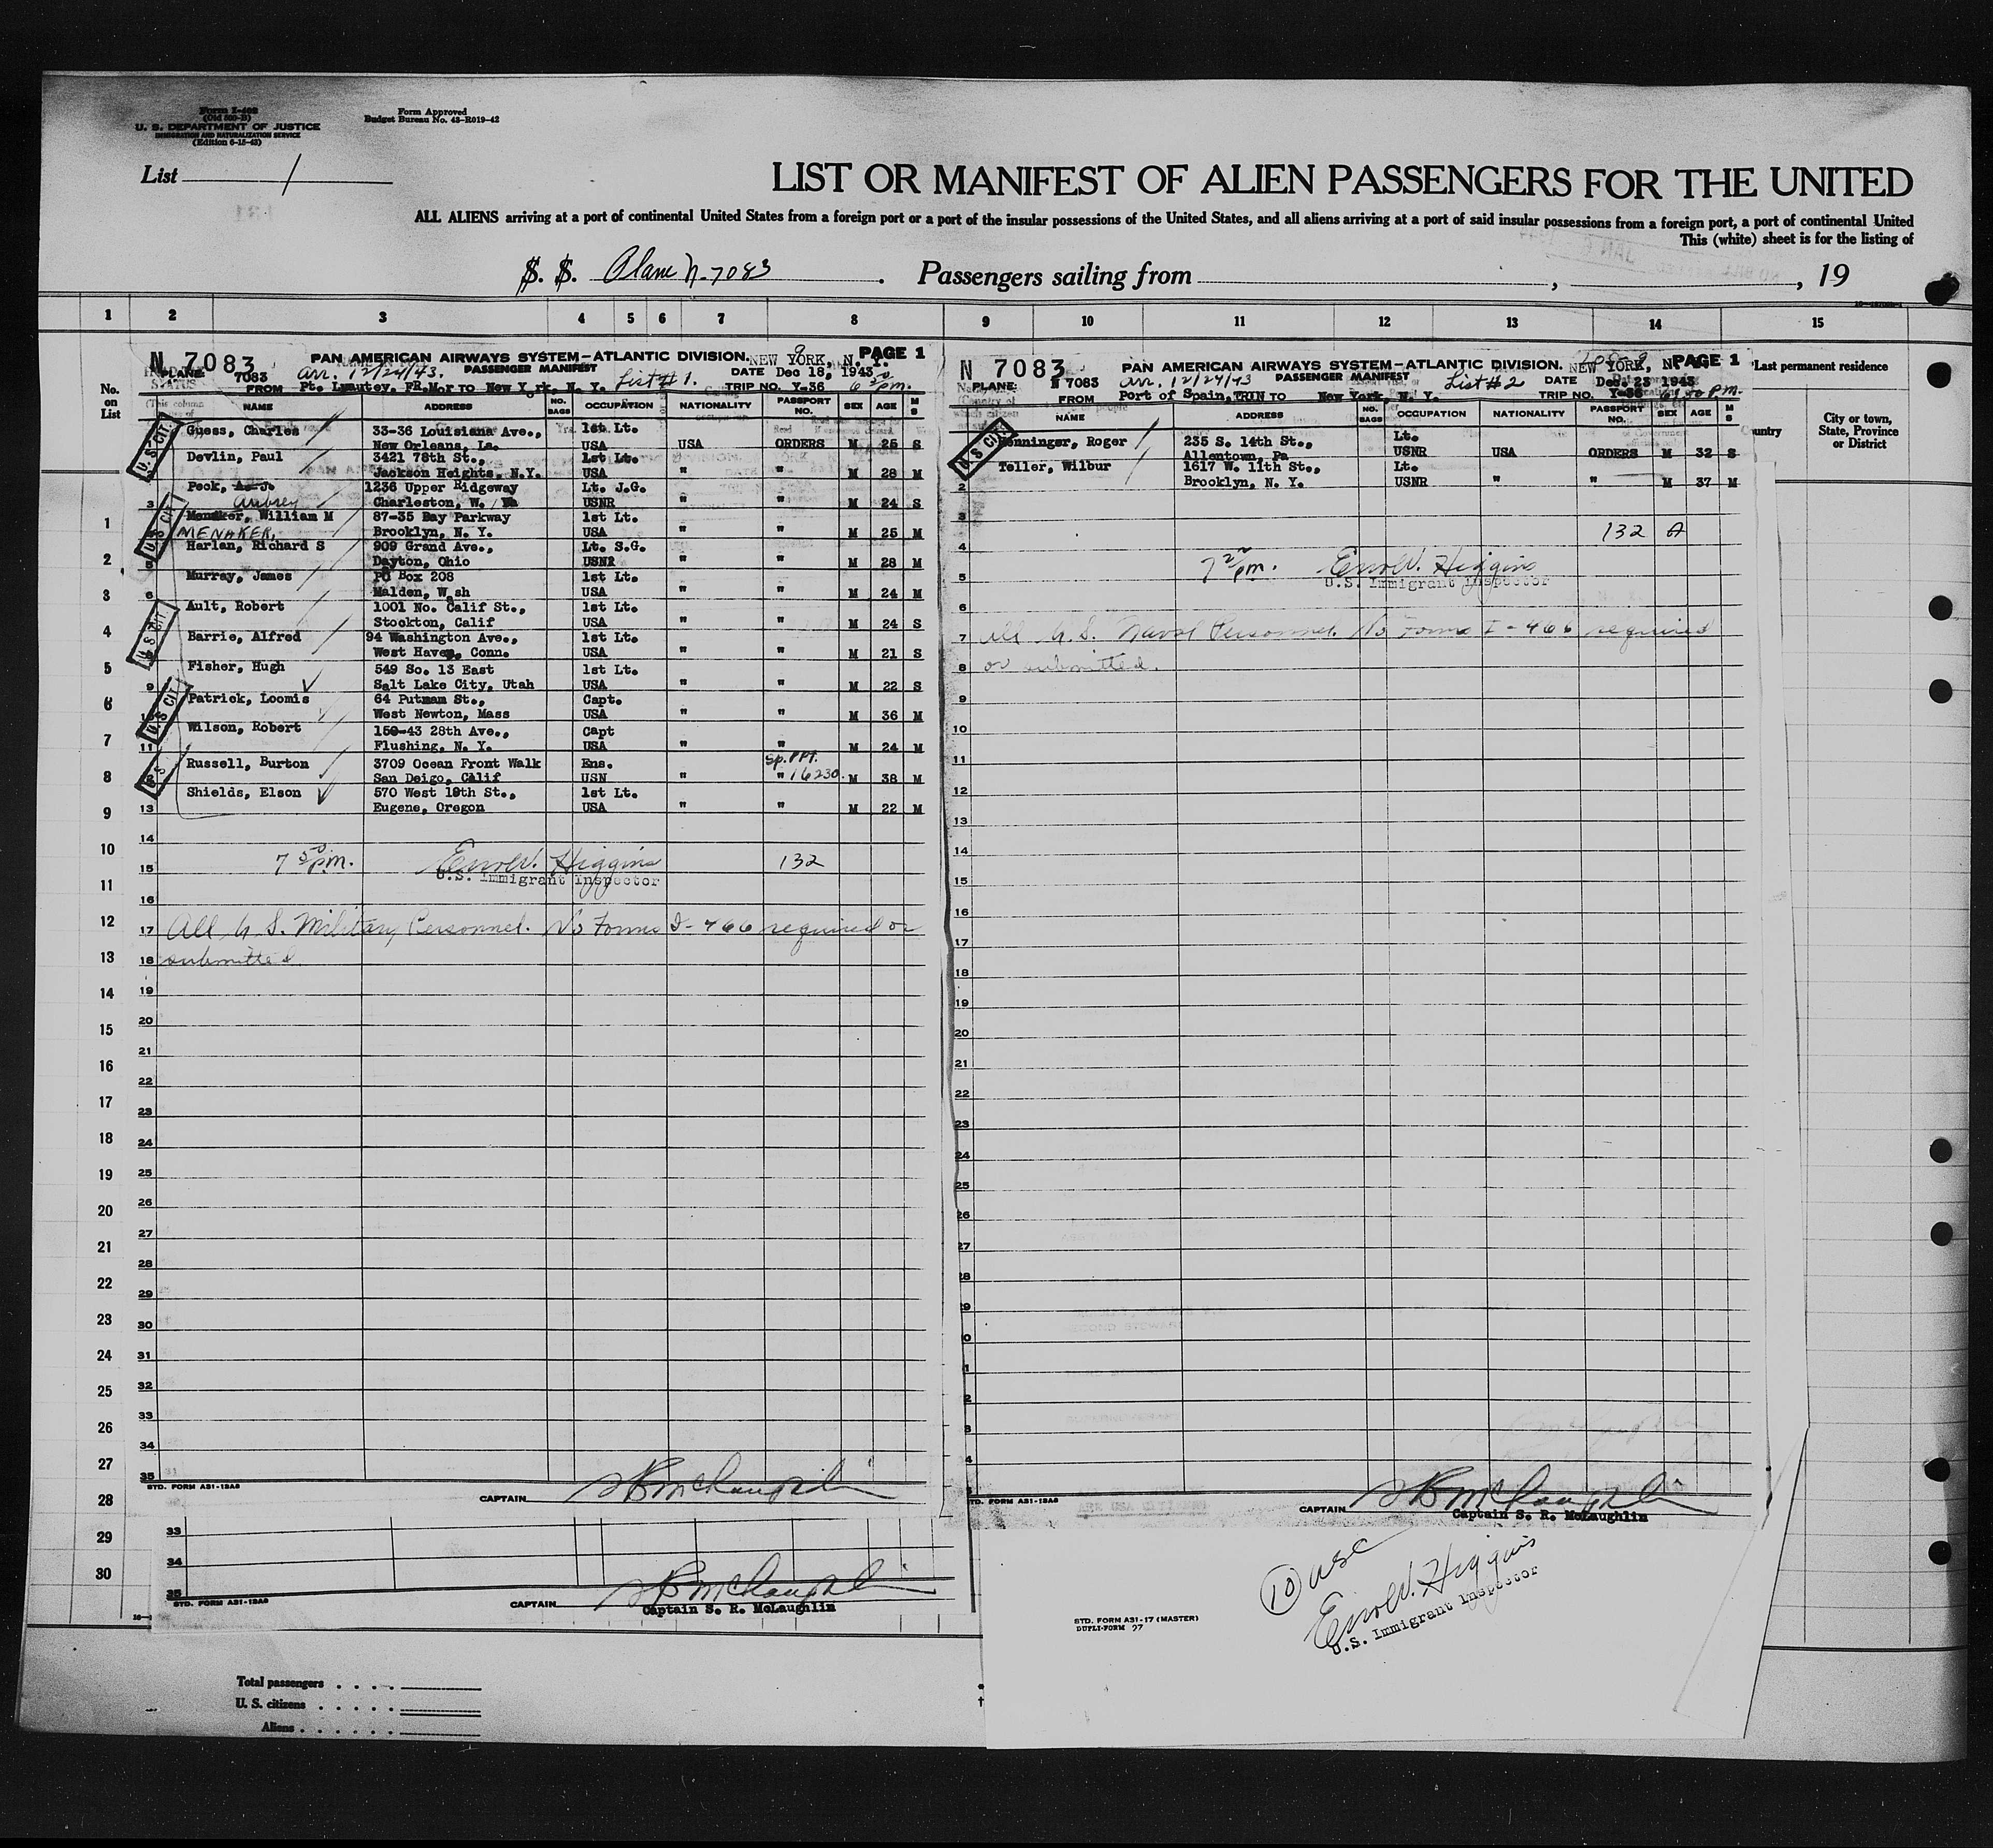 Form I-402
(Old 500-B)
U. S. DEPARTMENT OF JUSTICE
IMMIGRATION AND NATURALIZATION SERVICE
(Edition 6-15-43)
Form Approved
Budget Bureau No. 43-R019-42
List 1
LIST OR MANIFEST OF ALIEN PASSENGERS FOR THE UNITED
ALL ALIENS arriving at a port of continental United States from a foreign port or a port of the insular possessions of the United States, and all aliens arriving at a port of said insular possessions from a foreign port, a port of continental United
This (white) sheet is for the listing of
S. S. Plane N-7083. Passengers sailing from , , 19
1 2 3 4 5 6 7 8 9 10 11 12 13 14 15
No. on List
N 7083 PAN AMERICAN AIRWAYS SYSTEM—ATLANTIC DIVISION. NEW YORK, N. Y. PAGE 1
PLANE: 7083 arr. 12/24/43. PASSENGER MANIFEST List # 1. DATE Dec 18, 1943
FROM Pt. Lyautey, FR.Mor TO New York, N. Y. TRIP NO. Y-36 pm.
NAME ADDRESS NO. BAGS OCCUPATION NATIONALITY PASSPORT NO. SEX AGE M S
Guess, Charles 33-36 Louisiana Ave., 1st Lt.
New Orleans, La. USA USA ORDERS M 25 S
Devlin, Paul 3421 78th St., 1st Lt.
Jackson Heights, N.Y. USA " " M 28 M
Peck, A. J. 1236 Upper Ridgeway Lt. J.G.
3 Aubrey Charleston, W. Va USNR " " M 24 S
Menaker, William M 87-35 Bay Parkway 1st Lt.
MENAKER. Brooklyn, N. Y. USA " " M 25 M
Harlan, Richard S 909 Grand Ave., Lt. S.G.
Dayton, Ohio USNR " " M 28 M
Murray, James PO Box 208 1st Lt.
6 Malden, Wash USA " " M 24 M
Ault, Robert 1001 No. Calif St., 1st Lt.
Stockton, Calif USA " " M 24 S
Barrie, Alfred 94 Washington Ave., 1st Lt.
West Haven, Conn. USA " " M 21 S
Fisher, Hugh 549 So. 13 East 1st Lt.
9 Salt Lake City, Utah USA " " M 22 S
Patrick, Loomis 64 Putmam St., Capt.
West Newton, Mass USA " " M 36 M
Wilson, Robert 150-43 28th Ave., Capt
11 Flushing, N. Y. USA " " M 24 M
Russell, Burton 3709 Ocean Front Walk Ens. Sp. PPt.
San Deigo, Calif USN " " 16230. M 38 M
Shields, Elson 570 West 19th St., 1st Lt.
13 Eugene, Oregon USA " " M 22 M
U.S. CIT.
14
15 7 50 pm. Errol W. Higgins 132
U.S. Immigrant Inspector
16
17 All U S. Military Personnel. No Forms I-466 required or
18 submitted
19
20
21
22
23
24
25
26
27
28
29
30
31
32
33
34
35
STD. FORM A31-13A8 CAPTAIN S R McLaughlin
33
34
35
STD. FORM A31-13A8 CAPTAIN S R McLaughlin
Captain S. R. McLaughlin
1
2
3
4
5
6
7
8
9
10
11
12
13
14
15
16
17
18
19
20
21
22
23
24
25
26
27
28
29
30
Total passengers
U. S. citizens
Aliens
N 7083 PAN AMERICAN AIRWAYS SYSTEM—ATLANTIC DIVISION. NEW YORK, N. Y. PAGE 1
PLANE: N 7083 arr. 12/24/43 PASSENGER MANIFEST List # 2 DATE Dec. 23 1943
FROM Port of Spain, TRIN TO New York, N. Y. TRIP NO. Y-36 P.M.
NAME ADDRESS NO. BAGS OCCUPATION NATIONALITY PASSPORT NO. SEX AGE M S
U S CIT
Henninger, Roger 235 S. 14th St., Lt.
Allentown, Pa USNR USA ORDERS M 32 S
Teller, Wilbur 1617 W. 11th St., Lt.
2 Brooklyn, N. Y. USNR " " M 37 M
3 132 A
4
5 7 22 pm. Errol W. Higgins
U.S. Immigrant Inspector
6
7 All U.S. Naval Personnel. No Forms I-466 required
8 or submitted.
9
10
11
12
13
14
15
16
17
18
19
20
21
22
23
24
25
26
27
28
STD. FORM A31-13A8 CAPTAIN S R McLaughlin
Captain S. R. McLaughlin
10 USC
Errol W. Higgins
U.S. Immigrant Inspector
STD. FORM A31-17 (MASTER)
DUPLI-FORM 97
Last permanent residence
Country
City or town, State, Province or District